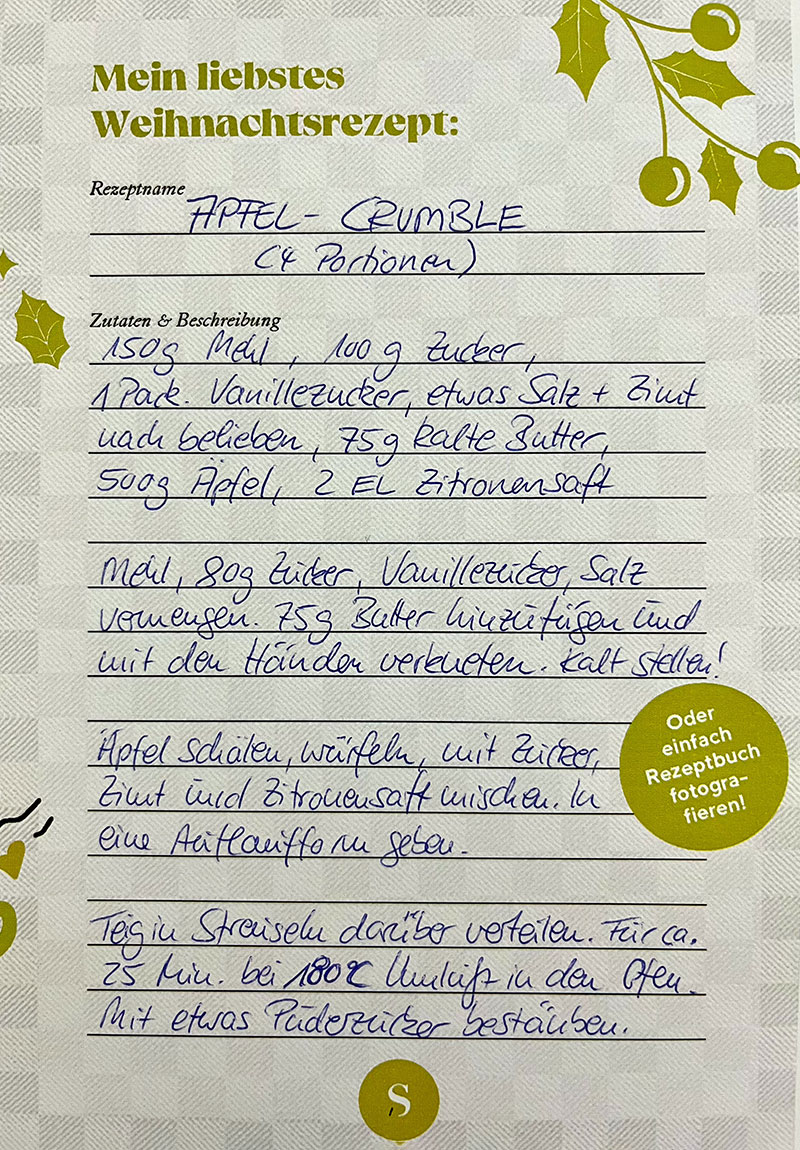 Mein liebstes
Weihnachtsrezept:
Rezeptname
APFEL - CRUMBLE
(4 Portionen)
Zutaten & Beschreibung
150g Mehl, 100g Zucker,
1 Pack. Vanillezucker, etwas Salz + Zimt
nach belieben, 75g kalte Butter,
500g Äpfel, 2 EL Zitronensaft
Mehl, 80g Zucker, Vanillezucker, Salz
vermengen. 75g Butter hinzufügen und
mit den Händen verkneten. Kalt stellen!
Äpfel schälen, würfeln, mit Zucker,
Zimt und Zitronensaft mischen. In
eine Auflaufform geben.
Oder
einfach
Rezeptbuch
fotogra-
fieren!
Teig in Streuseln darüber verteilen. Für ca.
25 Min. bei 180°C Umluft in den Ofen.
Mit etwas Puderzucker bestäuben.
S